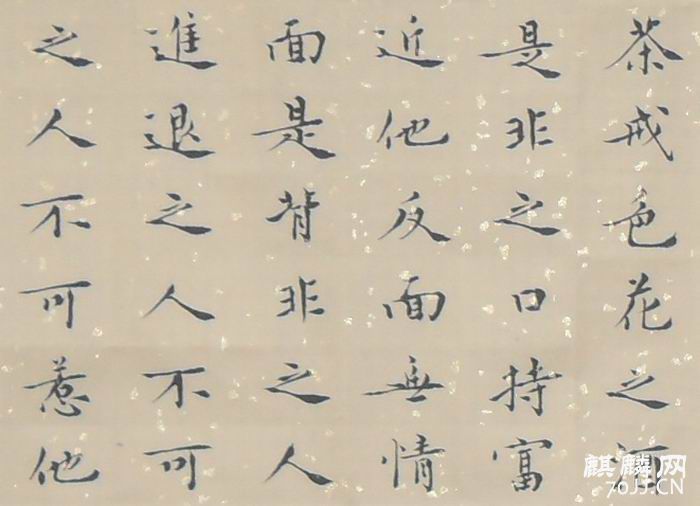 茶戒色花之酒
是非之口持富
近他反面無情
面是背非之人
進退之人不可
之人不可惹他
麒麟网
70JJ.CN